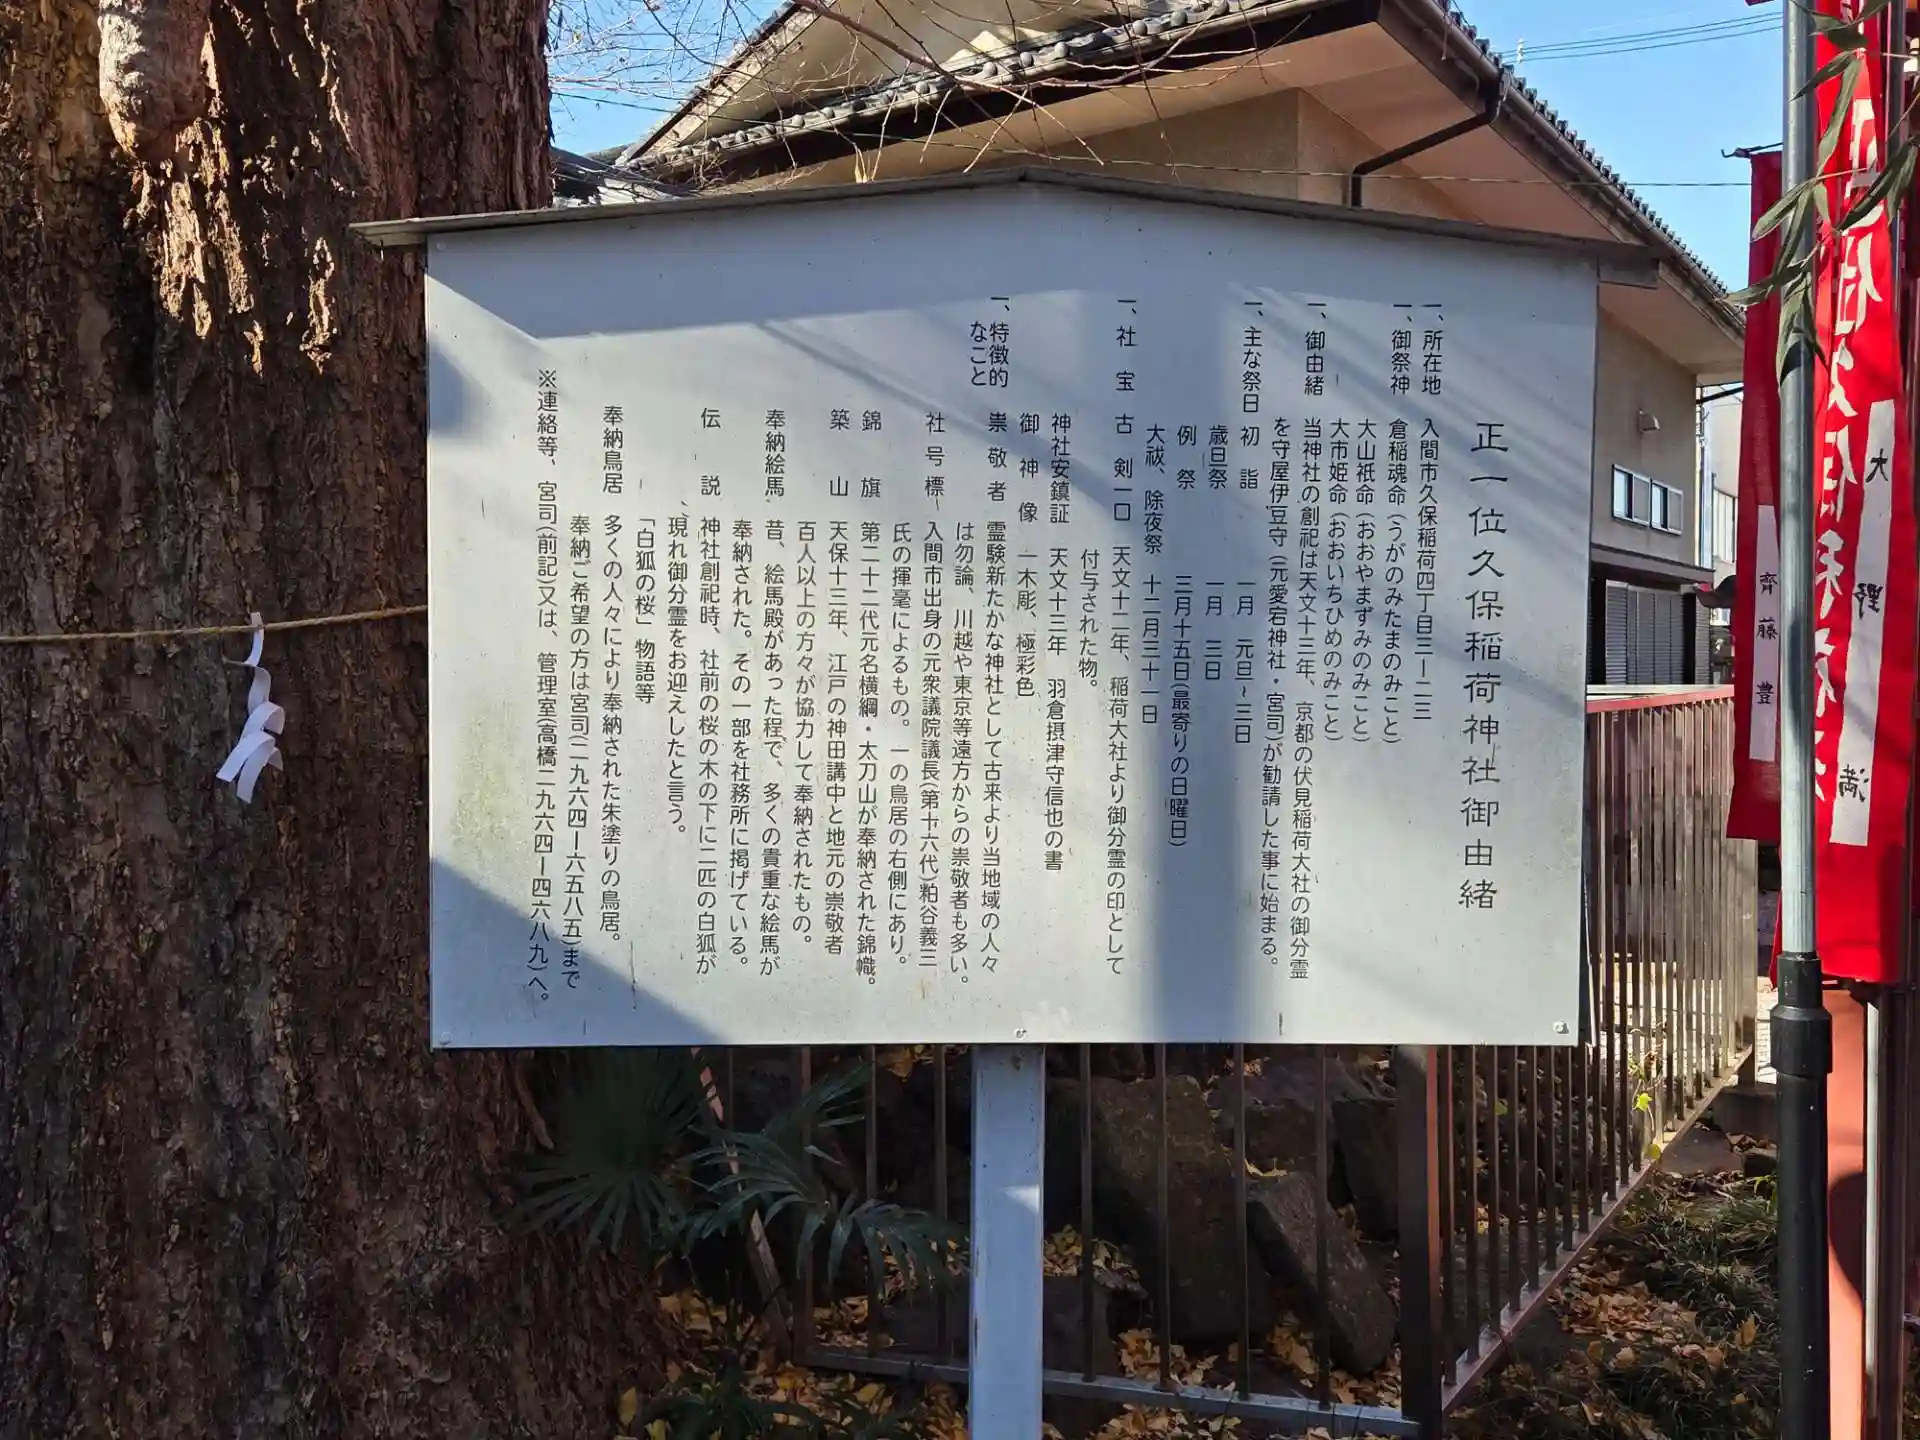 正一位久保稲荷神社御由緒
一、所在地 入間市久保稲荷四丁目三ー二三
一、御祭神 倉稲魂命(うがのみたまのみこと)
大山祇命(おおやまずみのみこと)
大市姫命(おおいちひめのみこと)
一、御由緒 当神社の創祀は天文十三年、京都の伏見稲荷大社の御分霊
を守屋伊豆守(元愛宕神社・宮司)が勧請した事に始まる。
一、主な祭日 初詣 一月 元旦~三日
歳旦祭 一月 三日
例祭 三月十五日(最寄りの日曜日)
大祓、除夜祭 十二月三十一日
一、社宝 古剣一口 天文十二年、稲荷大社より御分霊の印として
付与された物。
神社安鎮証 天文十三年 羽倉摂津守信也の書
御神像 一木彫、極彩色
一、特徴的
なこと 崇敬者 霊験新たかな神社として古来より当地域の人々
は勿論、川越や東京等遠方からの崇敬者も多い。
社号標 入間市出身の元衆議院議長(第十六代)粕谷義三
氏の揮毫によるもの。一の鳥居の右側にあり。
錦旗 第二十二代元名横綱・太刀山が奉納された錦幟。
築山 天保十三年、江戸の神田講中と地元の崇敬者
百人以上の方々が協力して奉納されたもの。
奉納絵馬 昔、絵馬殿があった程で、多くの貴重な絵馬が
奉納された。その一部を社務所に掲げている。
伝説 神社創祀時、社前の桜の木の下に二匹の白狐が
現れ御分霊をお迎えしたと言う。
「白狐の桜」物語等
奉納鳥居 多くの人々により奉納された朱塗りの鳥居。
奉納ご希望の方は宮司(二九六四ー六五八五)まで
※連絡等、宮司(前記)又は、管理室(高橋二九六四ー四六八九)へ。
大野 満
齊藤 豊